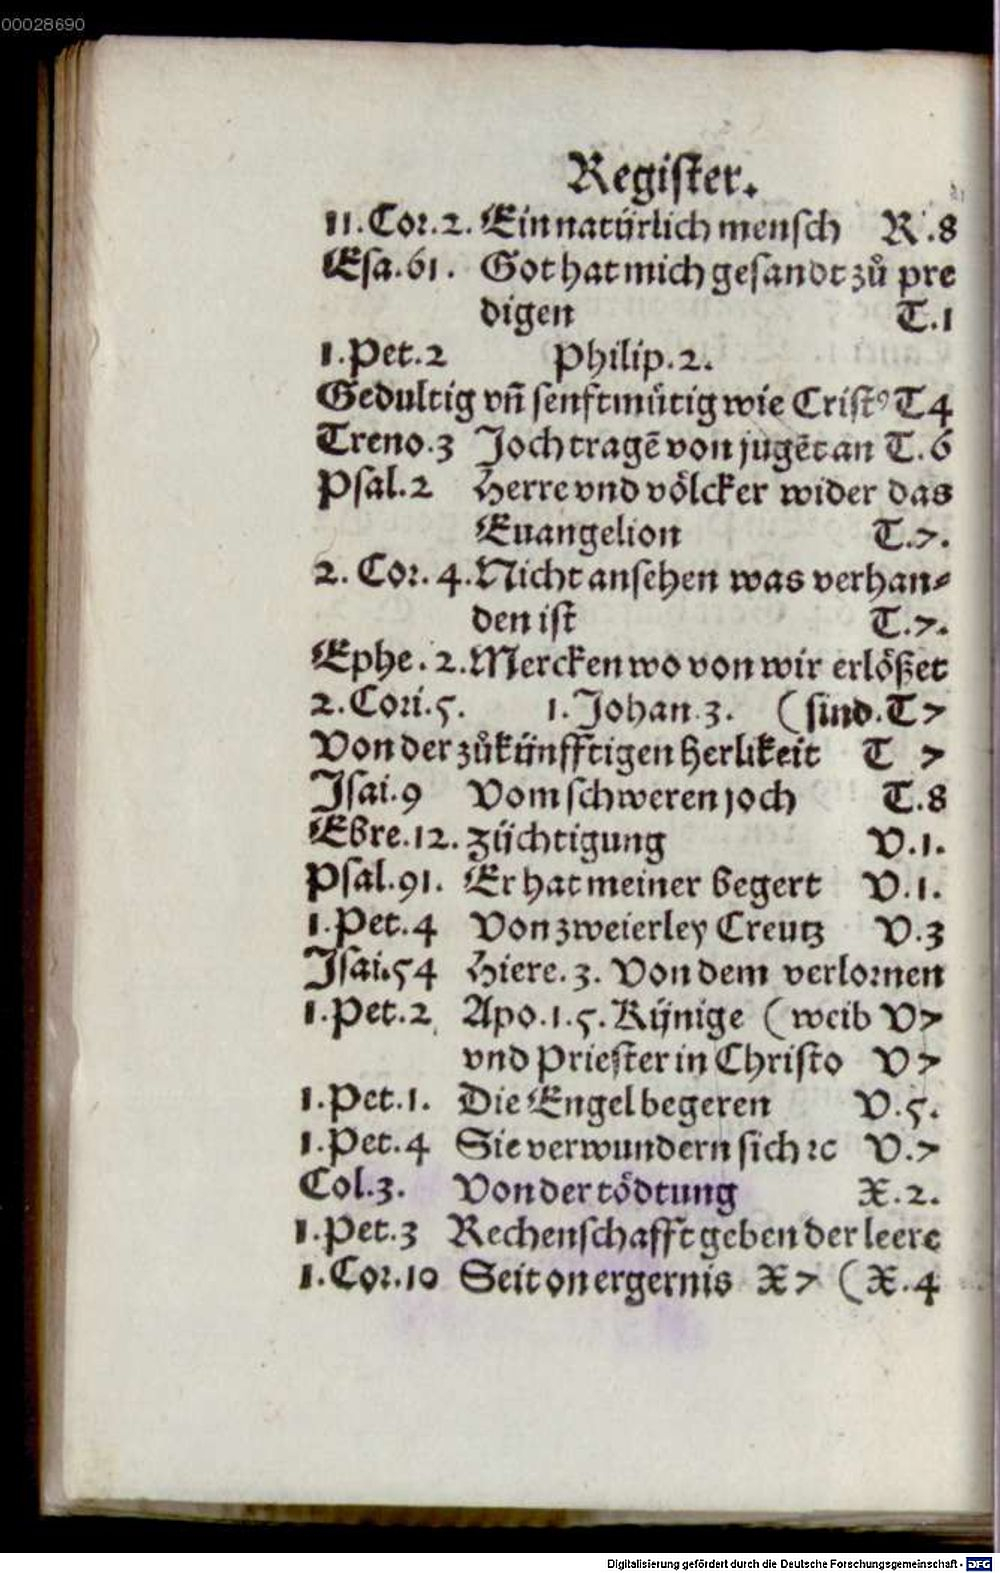 00028690
Register.
11.Cor.2. Ein natürlich mensch R.8
Esa.61. Got hat mich gesandt zů pre
digen T.1
1.Pet.2 Philip.2.
Gedultig vñ senftmütig wie Cristꝰ T4
Treno.3 Joch tragē von jugēt an T.6
Psal.2 Herre vnd völcker wider das
Euangelion T.7.
2. Cor. 4. Nicht ansehen was verhan⸗
den ist T.7.
Ephe. 2. Mercken wo von wir erlößet
2.Cori.5. 1.Johan.3. (sind.T7
Von der zůkünfftigen herlikeit T 7
Jsai.9 Vom schweren joch T.8
Ebre.12. züchtigung V.1.
Psal.91. Er hat meiner begert V.1.
1.Pet.4 Von zweierley Creutz V.3
Jsai.54 Hiere.3. Von dem verlornen
1.Pet.2 Apo.1.5. Künige (weib V7
vnd Priester in Christo V7
1.Pet.1. Die Engel begeren V.5.
1.Pet.4 Sie verwundern sich ꝛc V.7
Col.3. Von der tödtung X.2.
1.Pet.3 Rechenschafft geben der leere
1.Cor.10 Seit on ergernis X7 (X.4
Digitalisierung gefördert durch die Deutsche Forschungsgemeinschaft - DFG